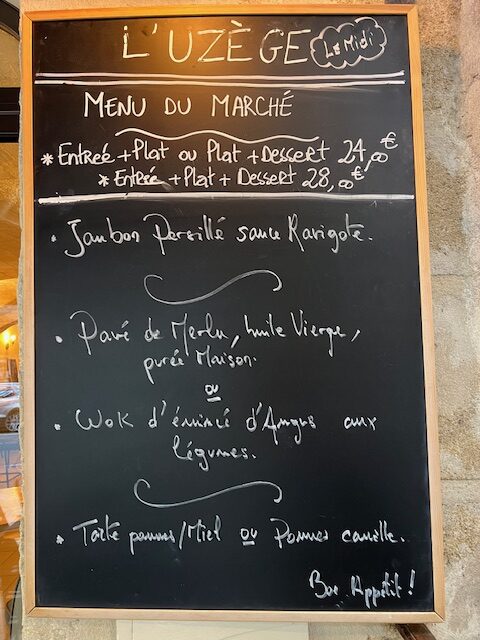 L'UZÈGE Le Midi
MENU DU MARCHÉ
* Entreé + Plat ou Plat + Dessert 24,00€
* Entrée + Plat + Dessert 28,00€
• Jambon Persillé sauce Ravigote.
• Pavé de Merlu, huile Vierge,
purée Maison.
ou
• Wok d'émincé d'Angus aux
légumes.
* Tarte pommes/Miel ou Pommes cannelle.
Bon Appétit !